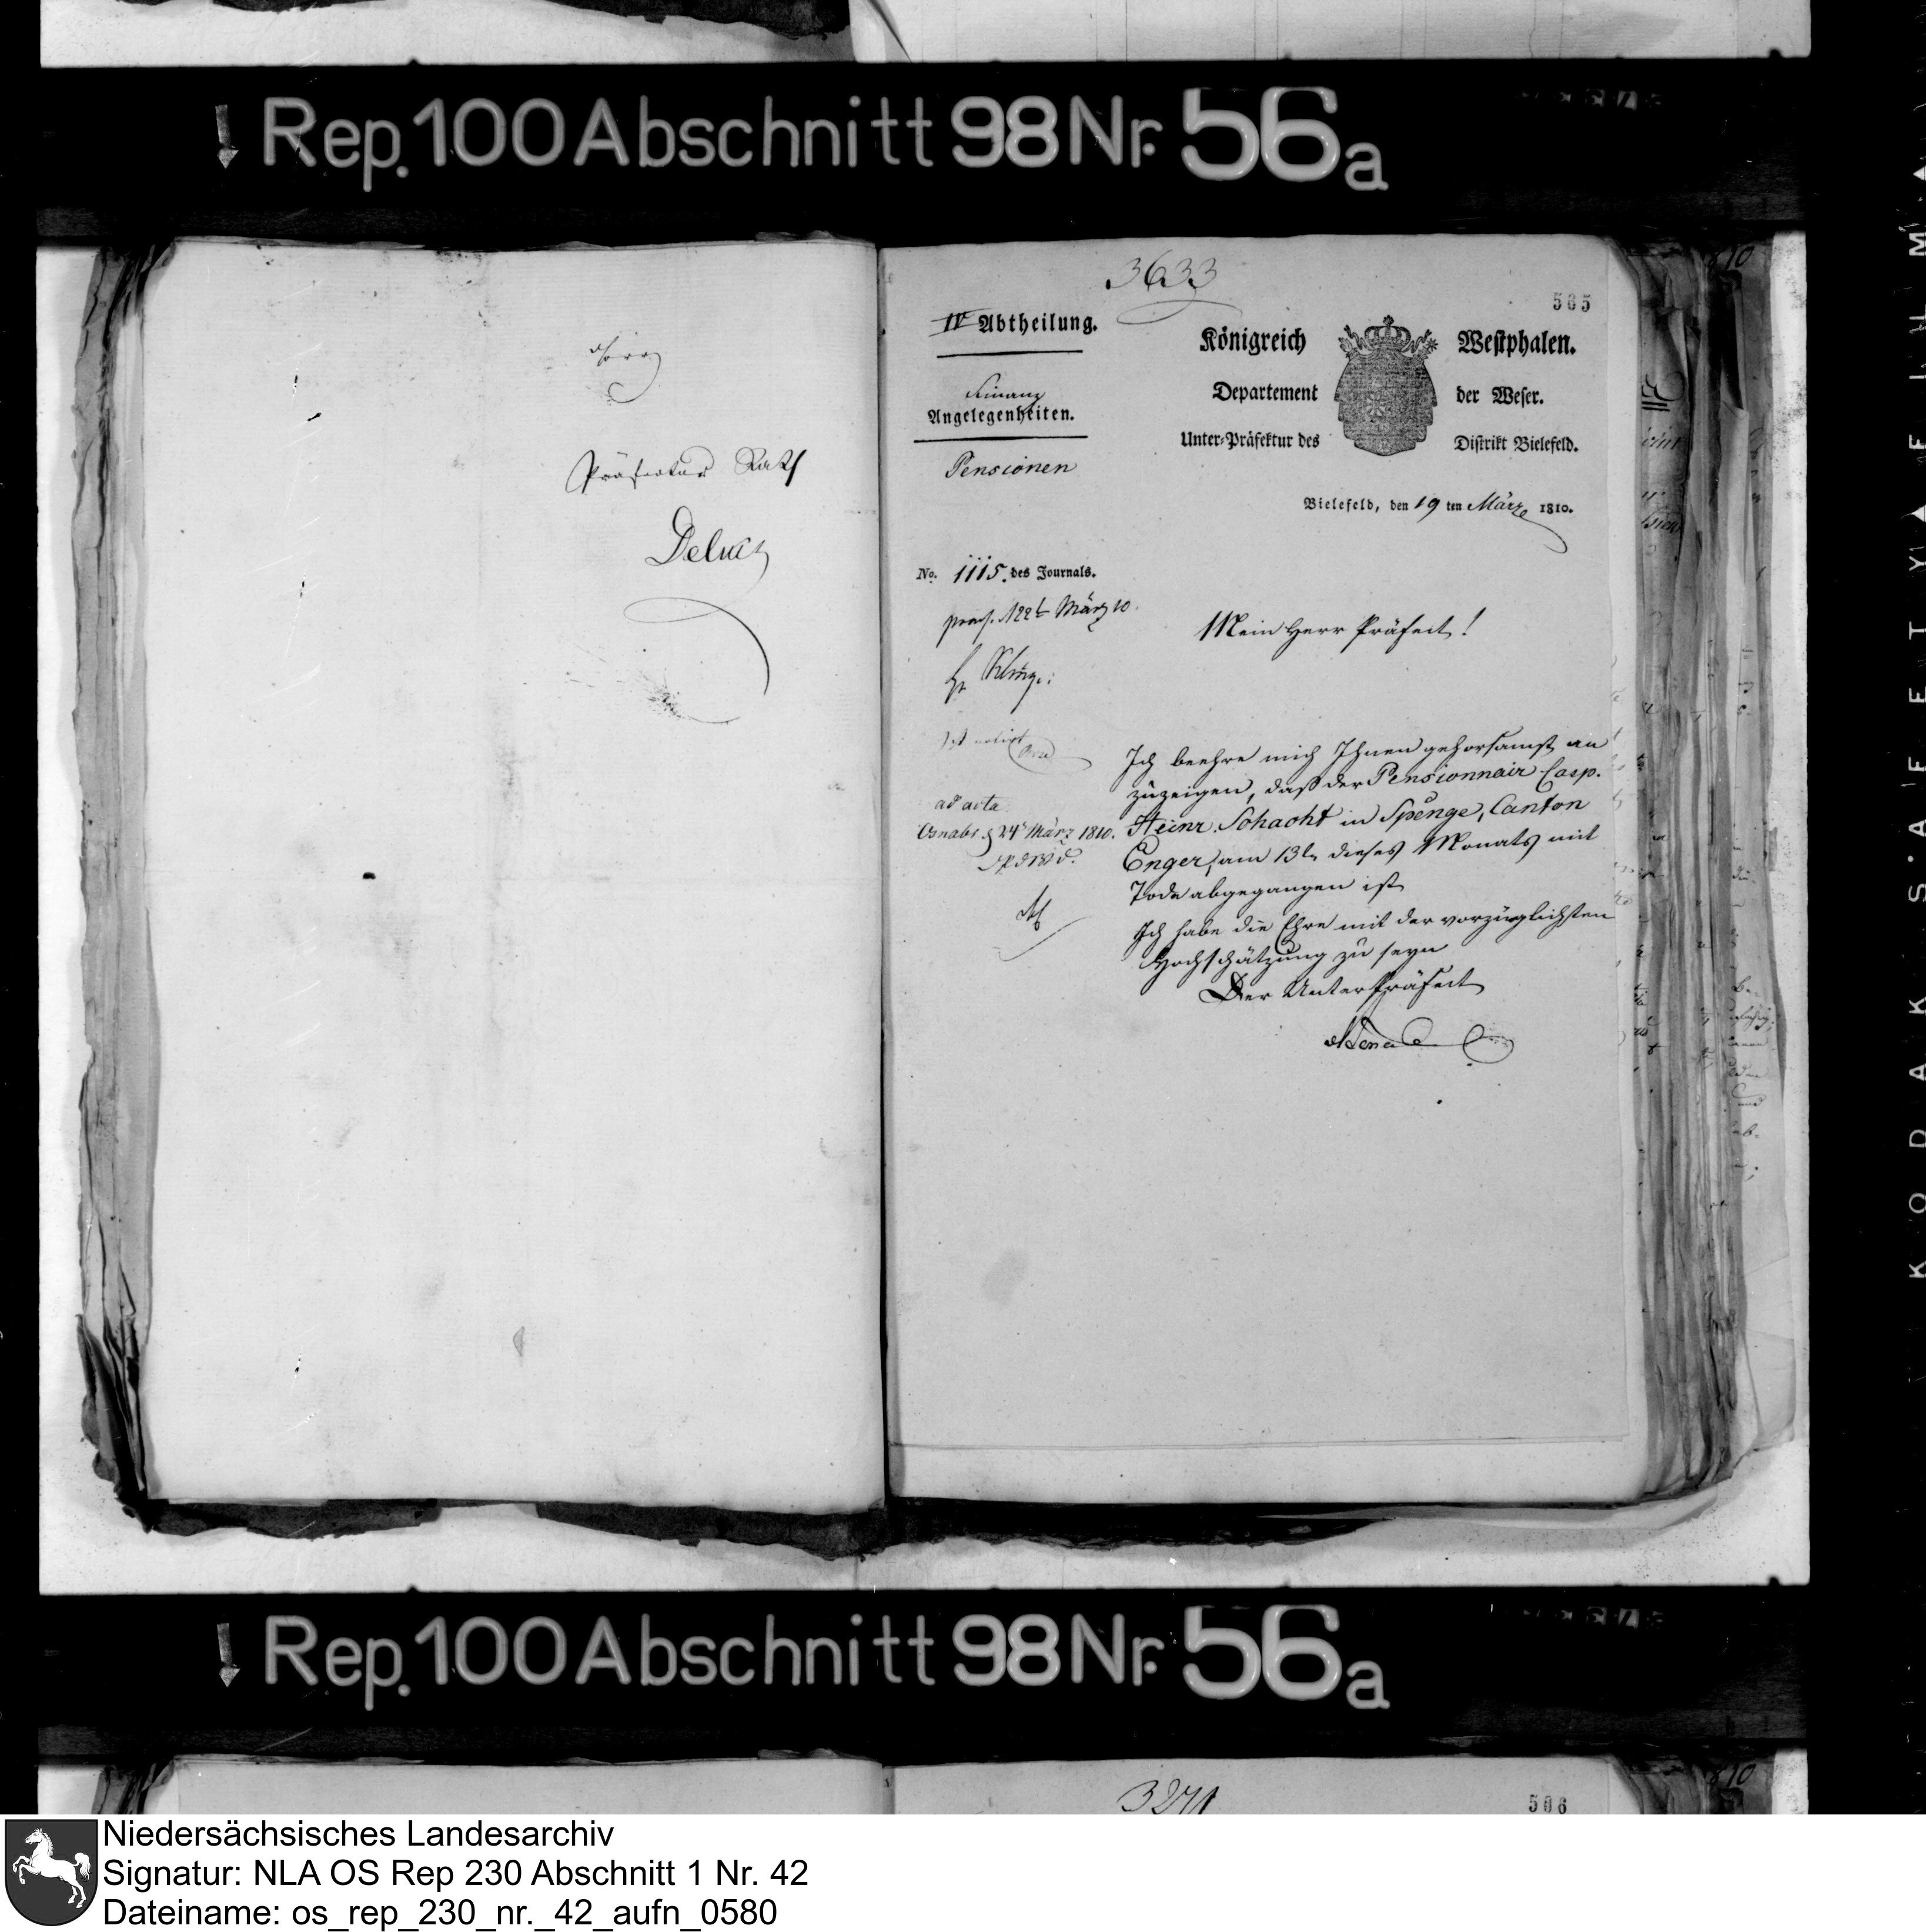 Rep. 100 Abschnitt 98 Nr. 56a
Herrn
Präfectur Rath
Delius
3633
505
IV Abtheilung.
Finanz
Angelegenheiten.
Pensionen
Königreich Westphalen.
Departement der Weser.
Unter-Präfektur des Distrikt Bielefeld.
Bielefeld, den 19 ten März 1810.
No. 1115. des Journals.
praes. 22t März 10.
Mein Herr Präfect!
Ist notirt
ad acta
Osnabr. d 24t März 1810.
Ich beehre mich Ihnen gehorsamst an
zuzeigen, daß der Pensionnair Casp.
Heinr. Schacht in Spenge, Canton
Enger, am 13ten dieses Monats mit
Tode abgegangen ist
Ich habe die Ehre mit der vorzüglichsten
Hochschätzung zu seyn
Der Unter Präfect
Rep. 100 Abschnitt 98 Nr. 56a
3271
506
KODAK SAFETY FILM
Niedersächsisches Landesarchiv
Signatur: NLA OS Rep 230 Abschnitt 1 Nr. 42
Dateiname: os_rep_230_nr._42_aufn_0580